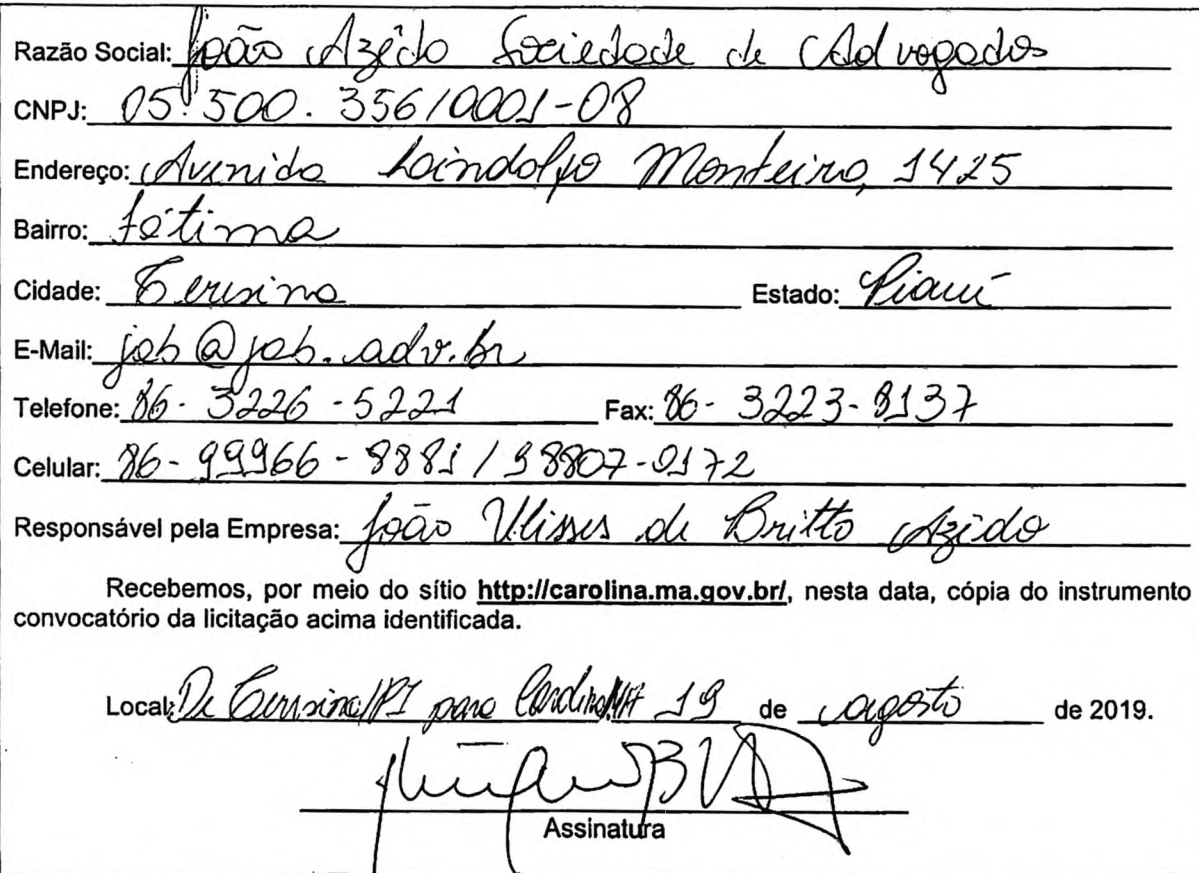 Razão Social: João Azêdo Sociedade de Advogados
CNPJ: 05.500.356/0001-08
Endereço: Avenida Lindolfo Monteiro, 1425
Bairro: Fátima
Cidade: Teresina Estado: Piauí
E-Mail: jab@jab.adv.br
Telefone: 86-3226-5221 Fax: 86-3223-8137
Celular: 86-99966-8881 / 98807-0172
Responsável pela Empresa: João Ulisses de Britto Azêdo
Recebemos, por meio do sítio http://carolina.ma.gov.br/, nesta data, cópia do instrumento
convocatório da licitação acima identificada.
Local: De Teresina/PI para Carolina/MA 19 de agosto de 2019.
Assinatura